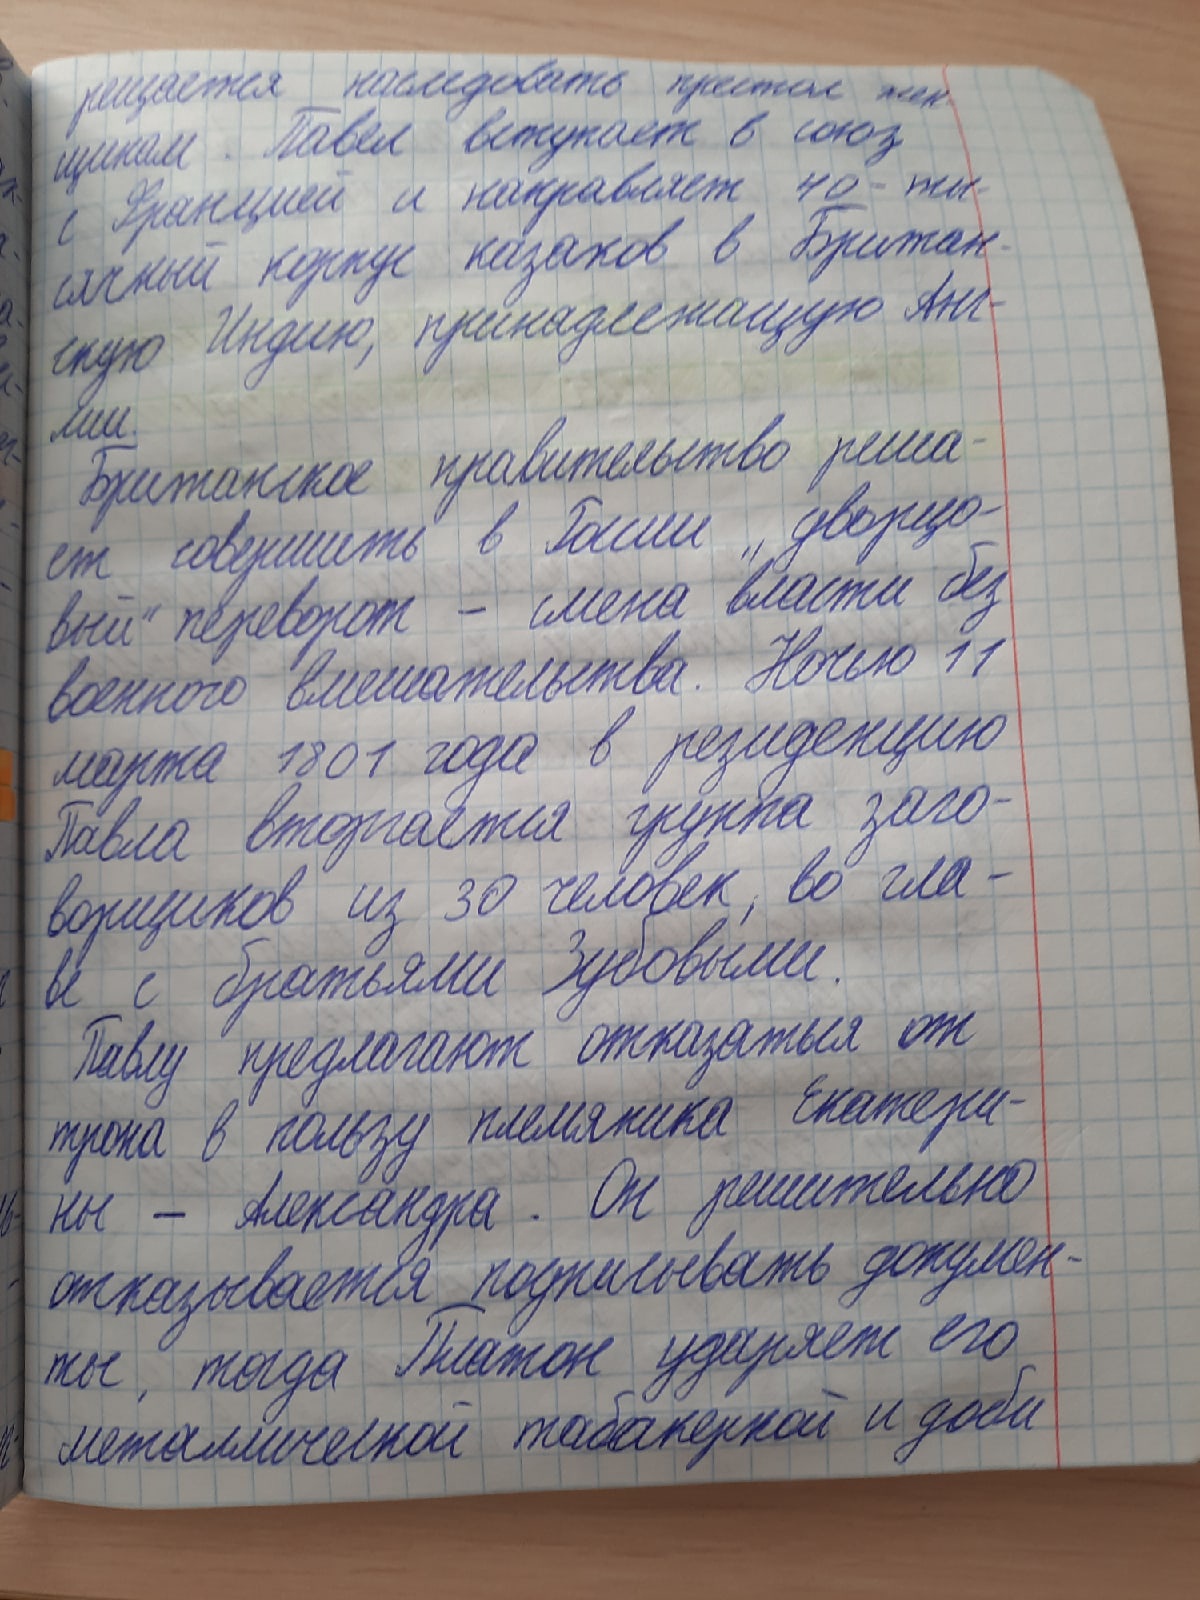 рещается наследовать престол жен-
щинам. Павел вступает в союз
с Францией и направляет 40-ты-
сячный корпус казаков в Британ-
скую Индию, принадлежащую Анг-
лии.
Британское правительство реша-
ет совершить в России „дворцо-
вый“ переворот – смена власти без
военного вмешательства. Ночью 11
марта 1801 года в резиденцию
Павла вторгается группа заго-
ворщиков из 30 человек, во гла-
ве с братьями Зубовыми.
Павлу предлагают отказаться от
трона в пользу племяника Екатери-
ны – Александра. Он решительно
отказывается подписывать докумен-
ты, тогда Платон ударяет его
металлической табакеркой и доби